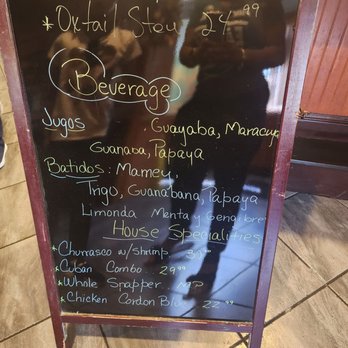 * Oxtail Stew 24.99
Beverage
Jugos , Guayaba, Maracuya
Guanaba, Papaya
Batidos: Mamey,
Trigo, Guanabana, Papaya
Limonda Menta y Gengibre
House Specialities
* Churrasco w/shrimp
* Cuban Combo 29.99
* Whole Snapper MP
* Chicken Cordon Blu 22.99